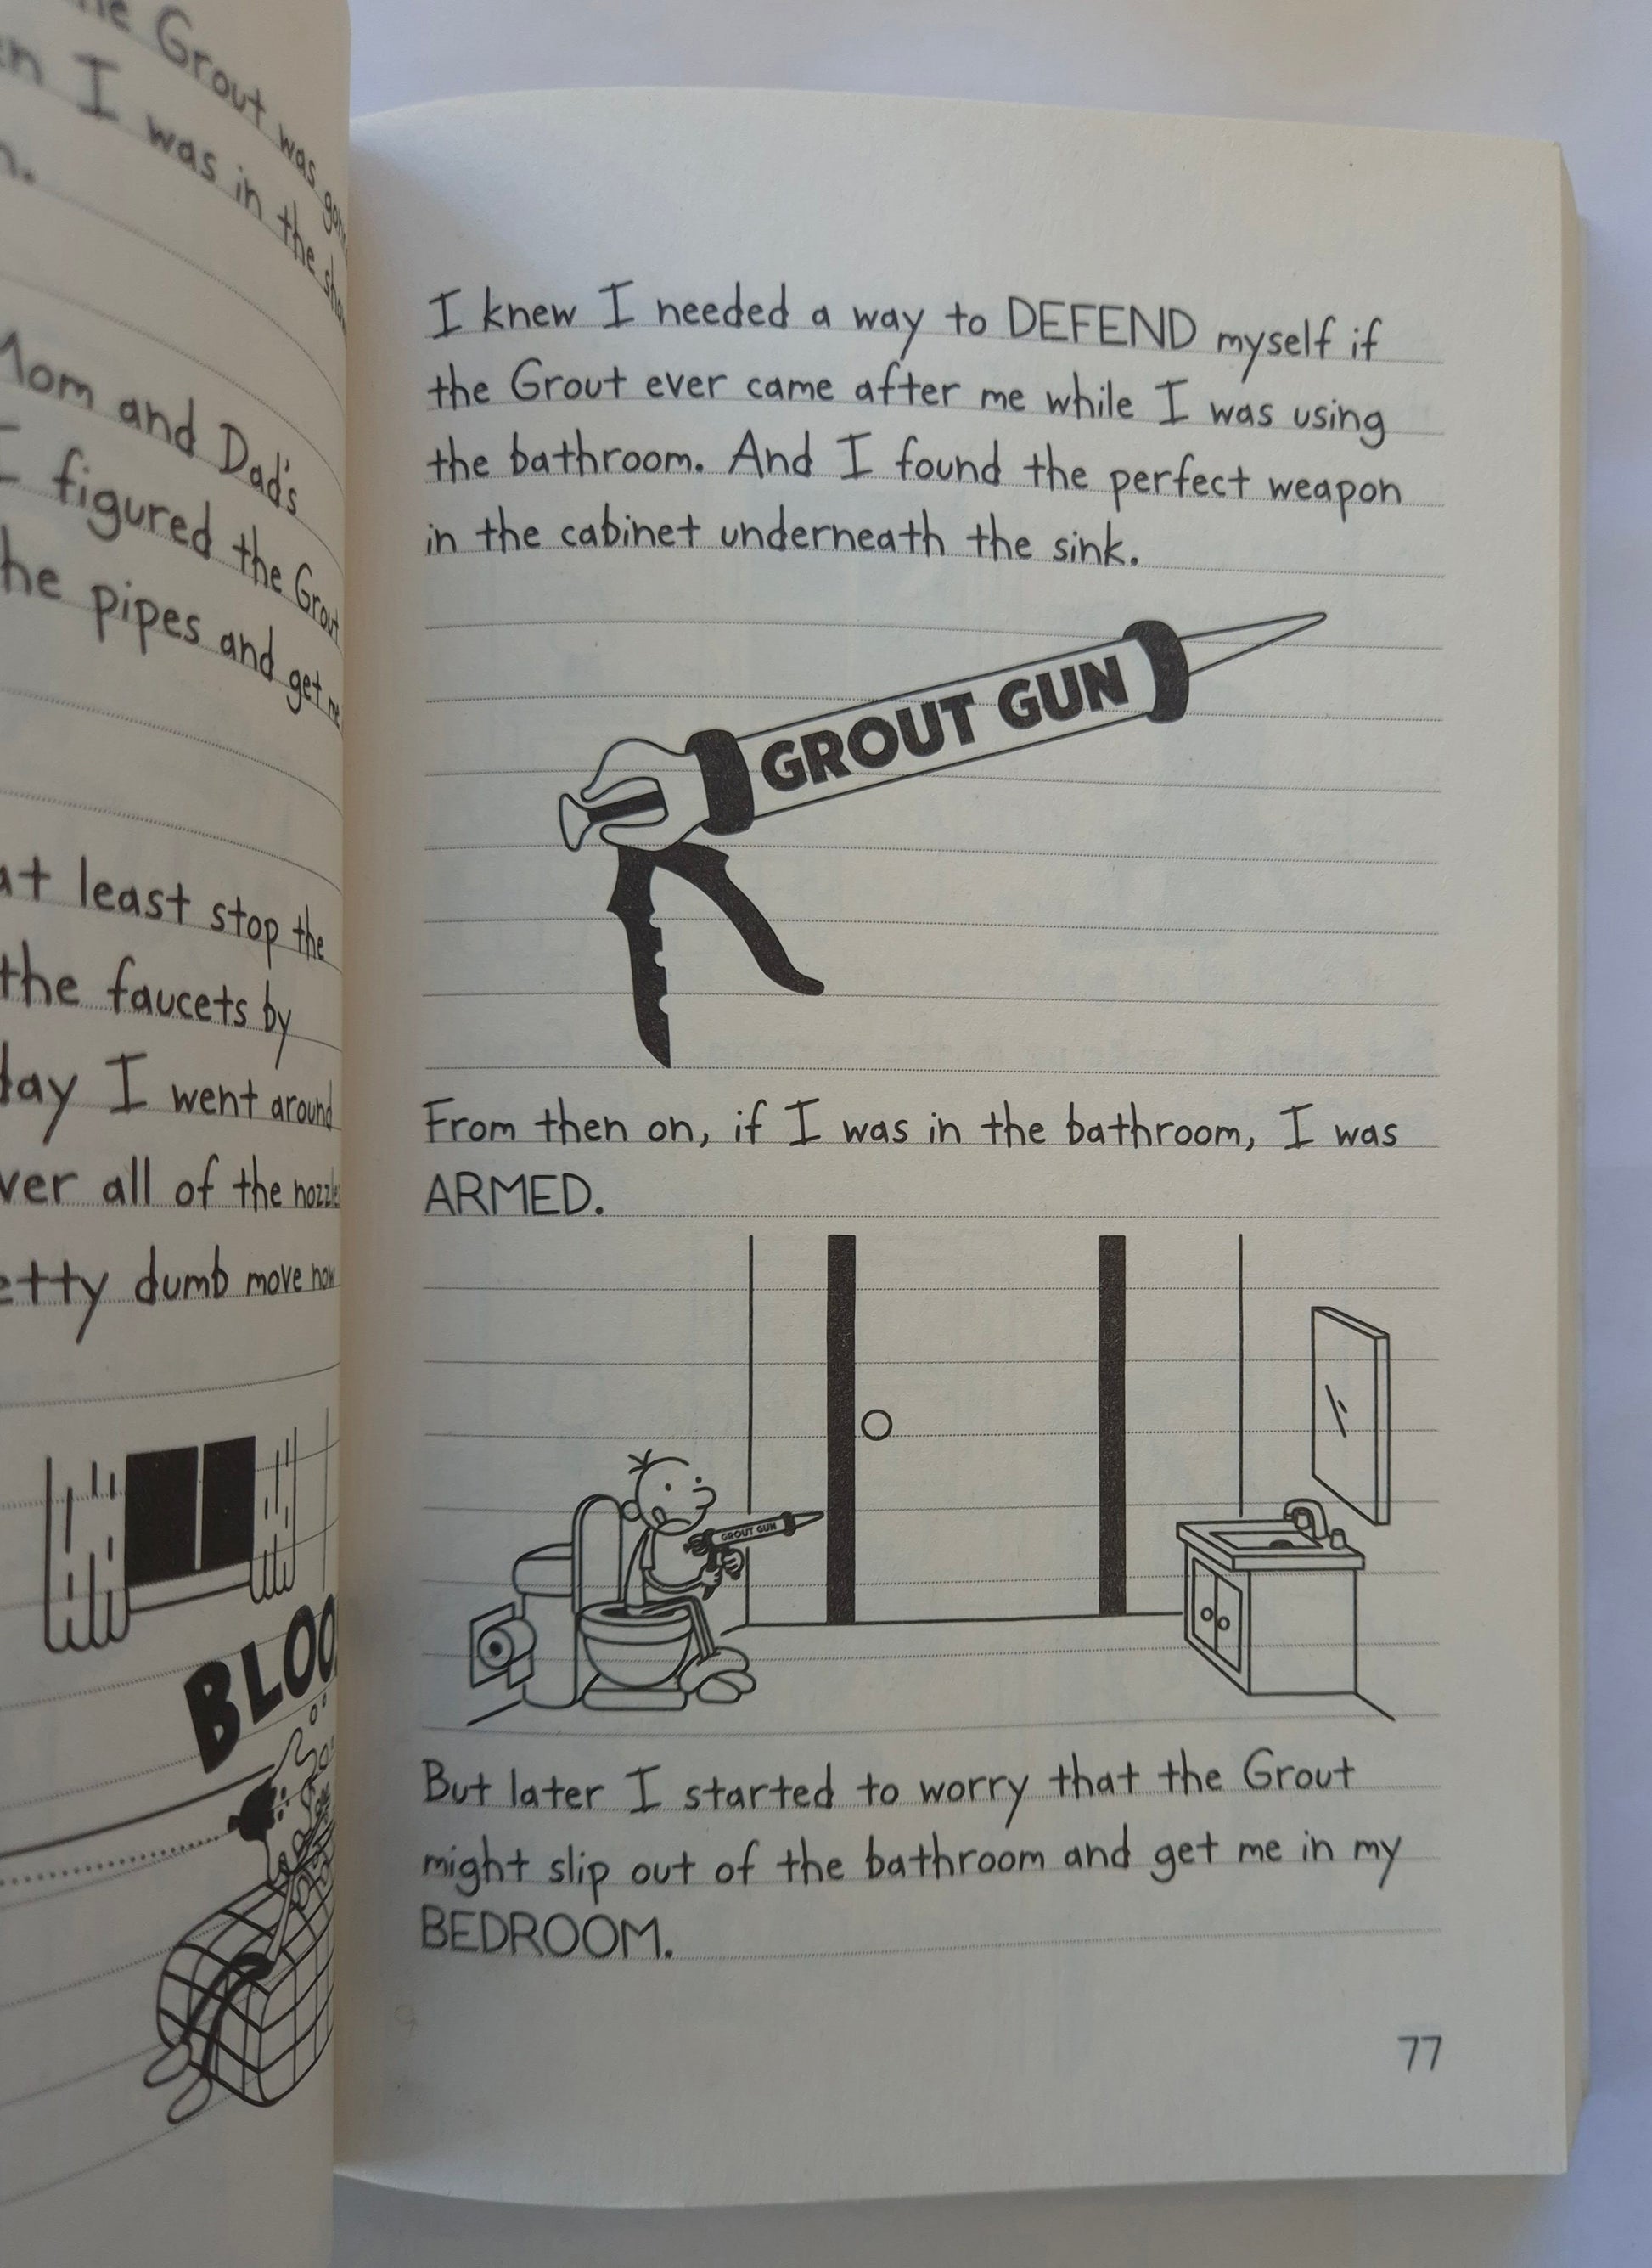 he Grout was
en I was in the
Mom and Dad's
I figured the Grout
the pipes and get me
at least stop the
the faucets by
day I went around
ver all of the nozzles
etty dumb move now
BLOO
I knew I needed a way to DEFEND myself if
the Grout ever came after me while I was using
the bathroom. And I found the perfect weapon
in the cabinet underneath the sink.
GROUT GUN
From then on, if I was in the bathroom, I was
ARMED.
GROUT GUN
But later I started to worry that the Grout
might slip out of the bathroom and get me in my
BEDROOM.
77